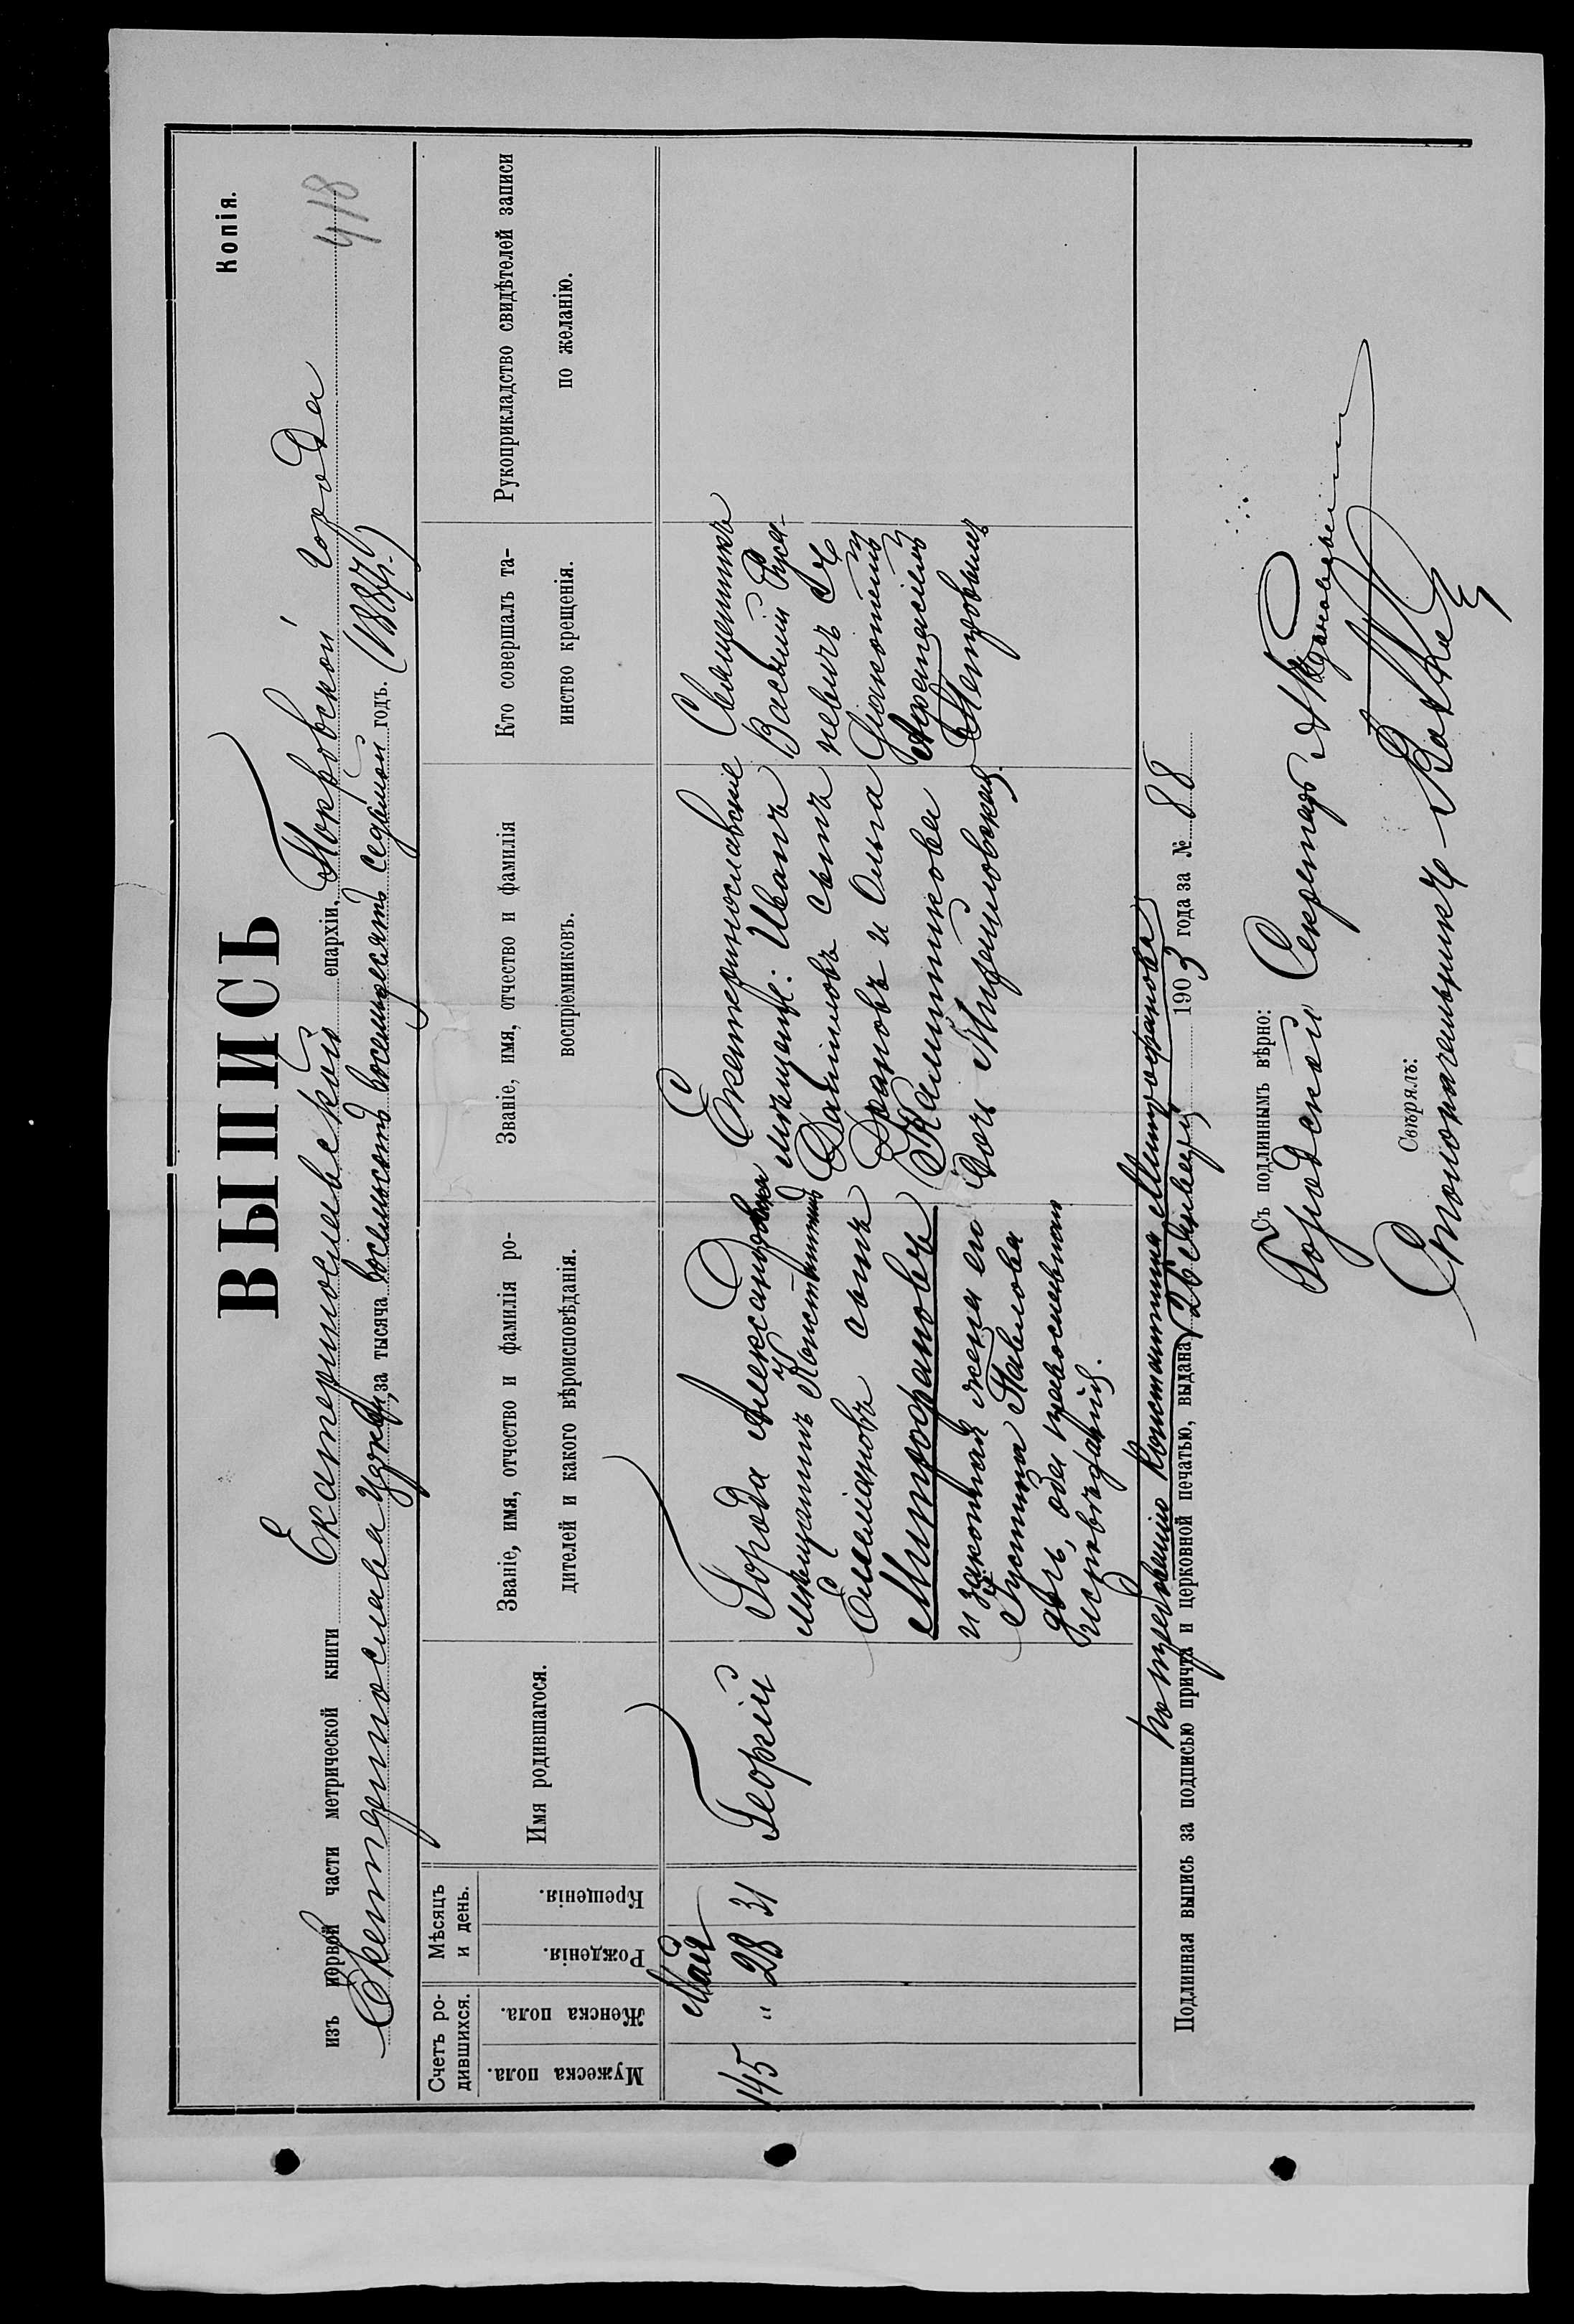 Копія.
ВЫПИСЬ
418
изъ первой части метрической книги Екатеринославской епархіи, Покровской города
Екатеринослава церкви, за тысяча восемьсотъ восемьдесятъ седьмой годъ. (1887г.)
Счетъ ро-
дившихся.
Мужеска пола.
Женска пола.
Мѣсяцъ
и день.
Рожденія.
Крещенія.
Имя родившагося.
Званіе, имя, отчество и фамилія ро-
дителей и какого вѣроисповѣданія.
Званіе, имя, отчество и фамилія
воспріемниковъ.
Кто совершалъ та-
инство крещенія.
Рукоприкладство свидѣтелей записи
по желанію.
Мая
145 " 28 31
Георгій
Города Александровска
мѣщанинъ Константинъ
Емеліановъ сынъ
Митрофановъ
и законная жена его
Іустина Павлова
дочь, оба православнаго
исповѣданія.
Екатеринославскіе
мѣщане: Иванъ
Даніиловъ сынъ
и Ольга
Калинникова
дочь
Священникъ
Василій
съ
Діакономъ
Афанасіемъ
Петровымъ
по требованію Константина Митрофанова
Подлинная выпись за подписью причта и церковной печатью, выдана 26 Января 1903 года за № 88
Съ подлиннымъ вѣрно:
Городской Секретарь
Свѣрялъ:
Столоначальникъ